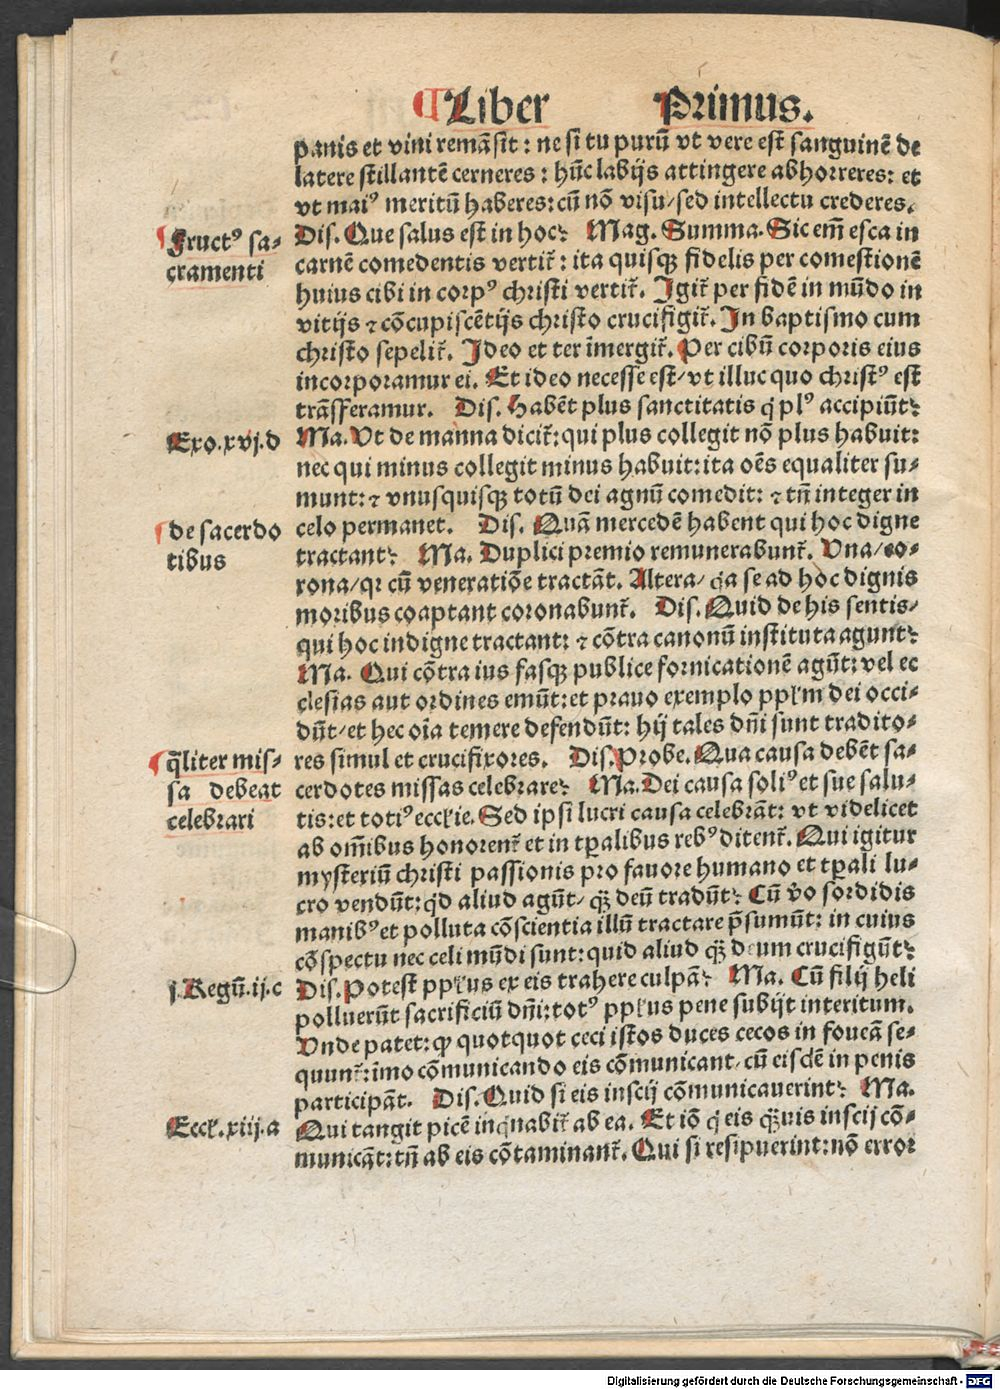 ¶Liber Primus.
panis et vini remāsit: ne si tu purū vt vere est sanguinē de
latere stillantē cerneres: hūc labijs attingere abhorreres: et
vt maiꝰ meritū haberes: cū nō visu/ sed intellectu crederes.
¶Fructꝰ sa-
cramenti
Dis. Que salus est in hoc? Mag. Summa. Sic em̄ esca in
carnē comedentis vertit̄: ita quisqꝫ fidelis per comestionē
huius cibi in corpꝰ christi vertit̄. Igit̄ per fidē in mūdo in
vitijs ⁊ cōcupiscētijs christo crucifigit̄. In baptismo cum
christo sepelit̄. Ideo et ter īmergit̄. Per cibū corporis eius
incorporamur ei. Et ideo necesse est/ vt illuc quo christꝰ est
trāsferamur. Dis. Habēt plus sanctitatis q̇ plꝰ accipiūt?
Exo.xvj.d
Ma. Vt de manna dicit̄: qui plus collegit nō plus habuit:
nec qui minus collegit minus habuit: ita oēs equaliter su-
munt: ⁊ vnusquisqꝫ totū dei agnū comedit: ⁊ tn̄ integer in
¶de sacerdo
tibus
celo permanet. Dis. Quā mercedē habent qui hoc digne
tractant? Ma. Duplici premio remunerabunt̄. Vna/ co-
rona/ qꝛ cū veneratiōe tractāt. Altera/ q̇a se ad hoc dignis
moribus coaptant coronabunt̄. Dis. Quid de his sentis/
qui hoc indigne tractant: ⁊ cōtra canonū instituta agunt?
Ma. Qui cōtra ius fasqꝫ publice fornicationē agūt: vel ec
clesias aut ordines emūt: et prauo exemplo ppl̄m dei occi-
dūt/ et hec oīa temere defendūt: hij tales dn̄i sunt tradito-
¶q̄liter mis-
sa debeat
celebrari
res simul et crucifixores. Dis. Probe. Qua causa debēt sa-
cerdotes missas celebrare? Ma. Dei causa soliꝰ et sue salu-
tis: et totiꝰ eccl̄ie. Sed ipsi lucri causa celebrāt: vt videlicet
ab om̄ibus honorent̄ et in tꝑalibus rebꝰ ditent̄. Qui igitur
mysteriū christi passionis pro fauore humano et tꝑali lu-
cro vendūt: qd̄ aliud agūt/ qꝫ̄ deū tradūt? Cū v̄o sordidis
manibꝰ et polluta cōscientia illū tractare p̄sumūt: in cuius
cōspectu nec celi mūdi sunt: quid aliud qꝫ̄ deum crucifigūt?
j.Regū.ij.c
Dis. Potest ppl̄us ex eis trahere culpā? Ma. Cū filij heli
polluerūt sacrificiū dn̄i: totꝰ ppl̄us pene subijt interitum.
Vnde patet: ꝙ quotquot ceci istos duces cecos in foueā se-
quunt̄: īmo cōmunicando eis cōmunicant/ cū eisdē in penis
participāt. Dis. Quid si eis inscij cōmunicauerint? Ma.
Eccl̄.xiij.a
Qui tangit picē inq̇nabit̄ ab ea. Et iō q̇ eis qꝫ̄uis inscij cō-
municāt: tn̄ ab eis cōtaminant̄. Qui si resipuerint: nō error
Digitalisierung gefördert durch die Deutsche Forschungsgemeinschaft - DFG